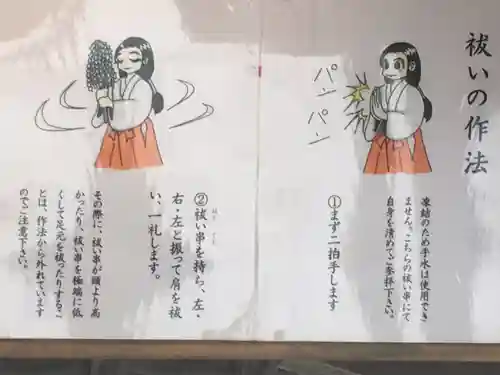 祓いの作法
凍結のため手水は使用でき
ません。こちらの祓い串にて
自身を清めてご参拝下さい。
①まず二拍手します
パンパン
②祓い串を持ち、左・
右・左と振って肩を祓
い、一礼します。
その際に、祓い串が頭より高
かったり、祓い串を極端に低
くして足元を祓ったりするこ
とは、作法から外れています
のでご注意下さい。